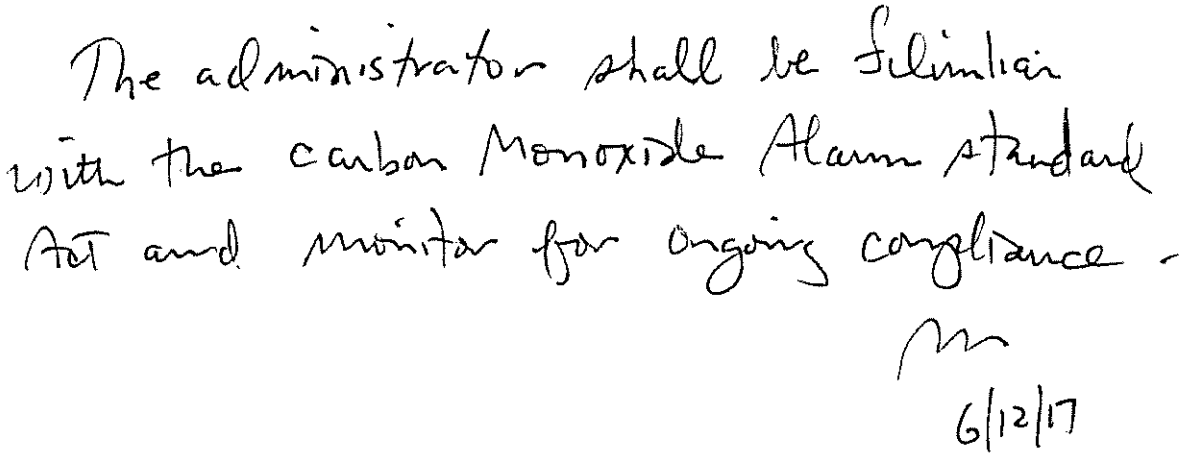 The administrator shall be filimliar
with the carbon Monoxide Alarm standard
Act and monitor for ongoing compliance.
6/12/17